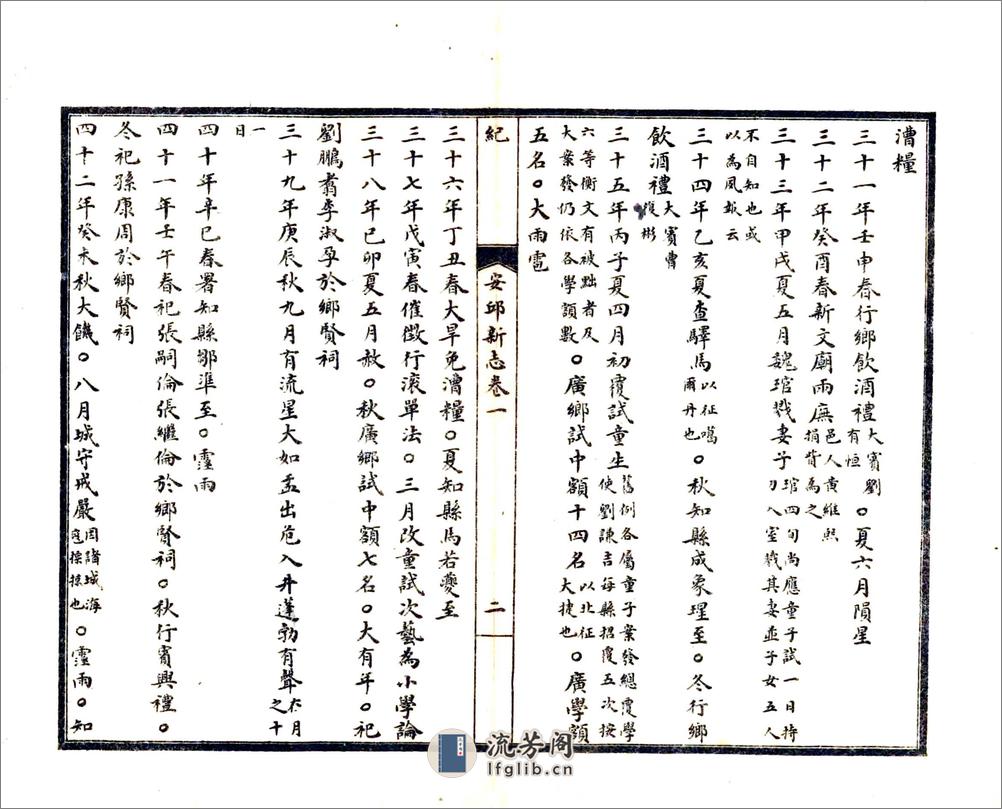 漕糧
三十一年壬申春行鄉飲酒禮大賓劉有恒○夏六月隕星
三十二年癸酉春新文廟兩廡邑人黄維熙捐貲為之
三十三年甲戌夏五月魏琯戕妻子琯四旬尚應童子試一日持刀入室戕其妻並子女五人
不自知也或以為風報云
三十四年乙亥夏查驛馬以征噶爾丹也○秋知縣成象瑆至○冬行鄉
飲酒禮大賓曹彬
三十五年丙子夏四月初覆試童生舊例各屬童子案發總覆學使劉謙吉每縣招覆五次按
六等衡文有被黜者及大案發仍依各學額數○廣鄉試中額十四名以北征大捷也○廣學額
五名○大雨雹
紀
安邱新志卷一
二
三十六年丁丑春大旱免漕糧○夏知縣馬若夔至
三十七年戊寅春催徵行滾單法○三月改童試次藝為小學論
三十八年己卯夏五月赦○秋廣鄉試中額七名○大有年○祀
劉鵬翥李淑孕於鄉賢祠
三十九年庚辰秋九月有流星大如盂出危入井蓬勃有聲在月之十
一日
四十年辛巳春署知縣鄒準至○霪雨
四十一年壬午春祀張嗣倫張繼倫於鄉賢祠○秋行賓興禮○
冬祀孫康周於鄉賢祠
四十二年癸未秋大饑○八月城守戒嚴因諸城海也○霪雨○知
流芳阁
lfglib.cn